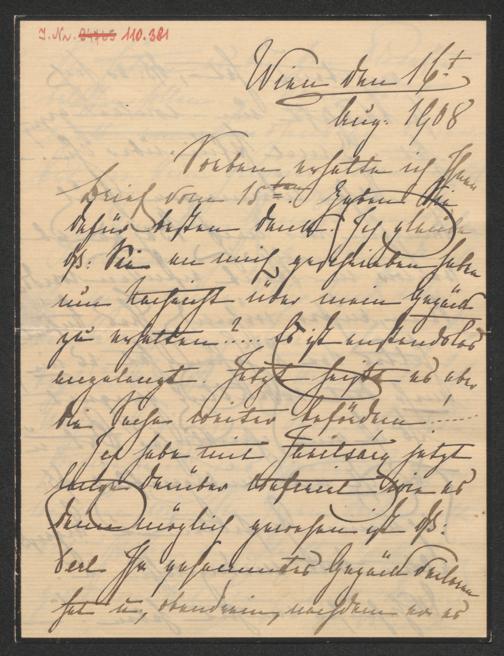 I. Nr. 110.381
Wien den 16t
Aug. 1908
Soeben erhalte ich Ihren
Brief vom 15ten. Haben Sie
dafür besten Dank. Ich glaube
dß. Sie an mich geschrieben haben
um Nachricht über mein Gepäck
zu erhalten?.... Es ist anstandslos
angelangt. Jetzt heißt es aber
die Sache weiter befördern!....
Ich habe mit jetzt
lange darüber wie es
denn möglich gewesen ist dß.
Ihr gesammtes Gepäck verloren
hat u, obendrein, nachdem er es